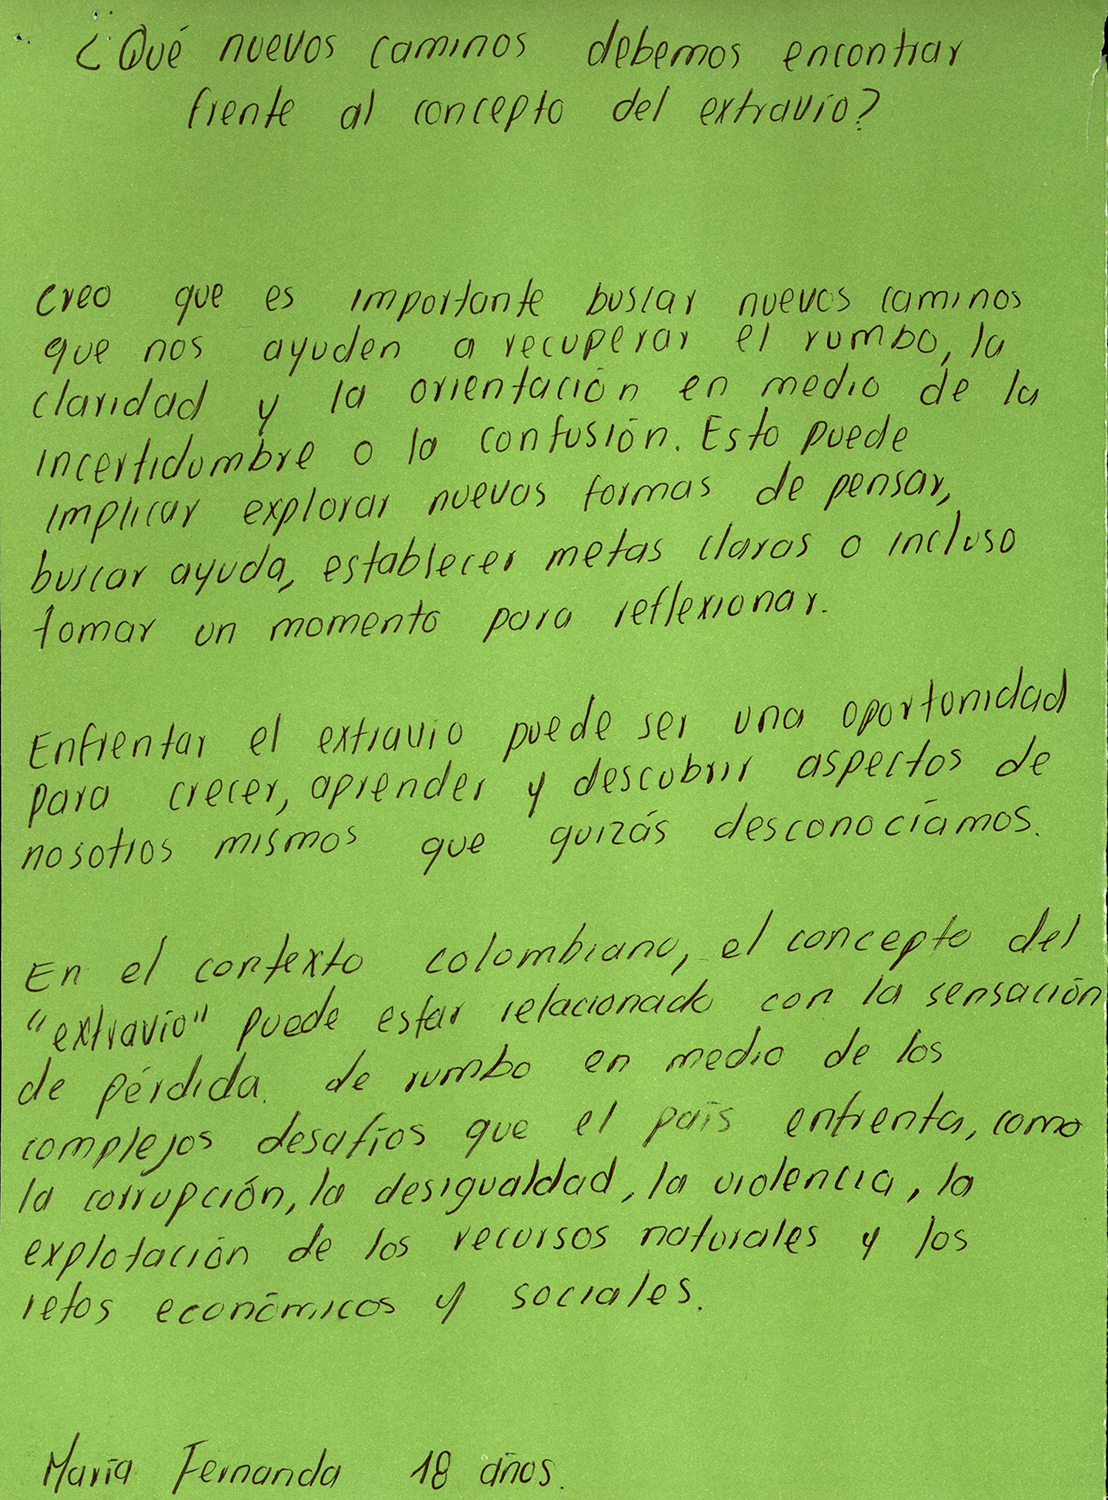 ¿Qué nuevos caminos debemos encontrar
frente al concepto del extravío?
Creo que es importante buscar nuevos caminos
que nos ayuden a recuperar el rumbo, la
claridad y la orientación en medio de la
incertidumbre o la confusión. Esto puede
implicar explorar nuevas formas de pensar,
buscar ayuda, establecer metas claras o incluso
tomar un momento para reflexionar.
Enfrentar el extravio puede ser una oportunidad
para crecer, aprender y descubrir aspectos de
nosotros mismos que quizás desconocíamos.
En el contexto colombiano, el concepto del
"extravío" puede estar relacionado con la sensación
de pérdida. de rumbo en medio de los
complejos desafíos que el país enfrenta, como
la corrupción, la desigualdad, la violencia, la
explotación de los recursos naturales y los
retos económicos y sociales.
María Fernanda 18 años.